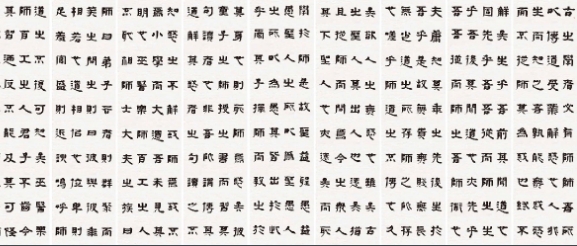 古之學者必有師師者所
以傳道受業解惑也人非
生而知之者孰能無惑惑
而不從師其為惑也終不
解矣生乎吾前其聞道也
固先乎吾吾從而師之生
乎吾後其聞道也亦先乎
吾吾從而師之吾師道也
夫庸知其年之先後生於
吾乎是故無貴無賤無長
無少道之所存師之所存
也嗟乎師道之不傳也久
矣欲人之無惑也難矣古
之聖人其出人也遠矣猶
且從師而問焉今之眾人
其下聖人也亦遠矣而恥
學於師是故聖益聖愚益
愚聖人之所以為聖愚人
之所以為愚其皆出於此
乎愛其子擇師而教之於
其身也則恥師焉惑矣彼
童子之師授之書而習其
句讀者也非吾所謂傳其
道解其惑者也句讀之不
知惑之不解或師焉或不
焉小學而大遺吾未見其
明也巫醫樂師百工之人
不恥相師士大夫之族曰
師曰弟子云者則群聚而
笑之問之則曰彼與彼年
相若也道相似也位卑則
足羞官盛則近諛嗚呼師
道之不復可知矣巫醫樂
師百工之人君子不齒今
其智乃反不能及其可怪